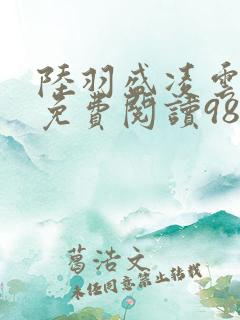 陸羽盛凌雲
免費閱讀98
葛浩文
未經同意禁止轉載